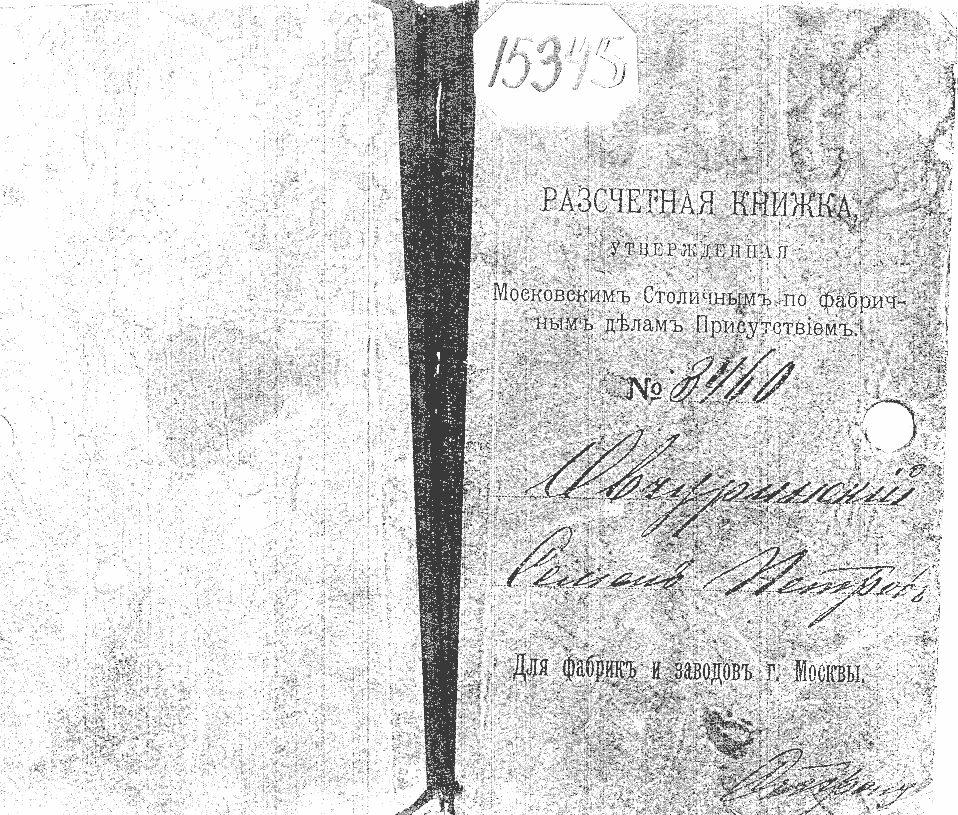 15345
РАЗСЧЕТНАЯ КНИЖКА,
УТВЕРЖДЕННАЯ
Московскимъ Столичнымъ по фабрич-
нымъ дѣламъ Присутствіемъ.
№ 8460
Овчуринскій
Семенъ Петровъ
Для фабрикъ и заводовъ г. Москвы.